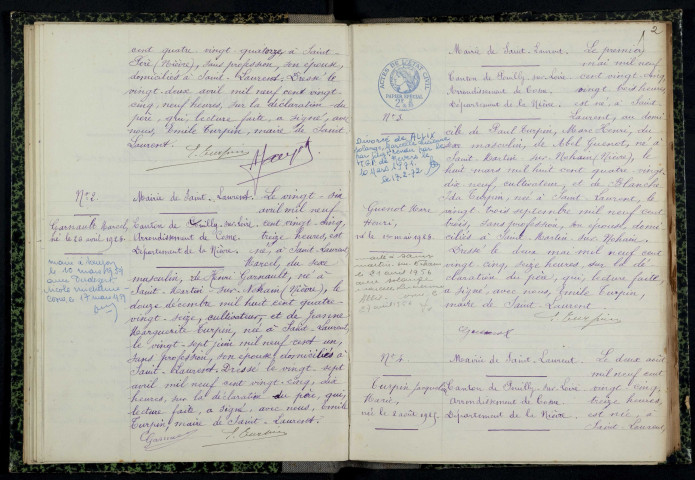 cent quatre vingt quatorze à Saint-
Péré (Nièvre), sans profession, son épouse,
domiciliés à Saint-Laurent. Dressé le
vingt deux avril mil neuf cent vingt
cinq, neuf heures, sur la déclaration du
père, qui, lecture faite, a signé, avec
nous, Emile Turpin, maire de Saint
Laurent.
E. Turpin
N° 2.
Garnault Marcel,
né le 26 avril 1925.
marié à
le 10 mars 1951
avec
Mairie de Saint-Laurent.
Canton de Pouilly-sur-Loire
Arrondissement de Cosne
Département de la Nièvre.
Le vingt-six
avril mil neuf
cent vingt cinq,
treize heures, est
né, à Saint Laurent
Marcel, du sexe
masculin, de Henri Garnault, né à
Saint-Martin-sur-Nohain (Nièvre), le
douze décembre mil huit cent quatre-
vingt-seize, cultivateur, et de Jeanne
Marguerite Turpin, née à Saint-Laurent,
le vingt-sept juin mil neuf cent un,
sans profession, son épouse, domiciliés à
Saint-Laurent. Dressé le vingt sept
avril mil neuf cent vingt-cinq, dix
heures, sur la déclaration du père, qui,
lecture faite, a signé avec nous, Emile
Turpin, maire de Saint-Laurent.
E. Turpin
2
ACTES DE L'ETAT CIVIL
PAPIER SPECIAL
N° 3.
Divorcé de ALLIX
Solange
TGI de Nevers le
Guenot Marc
Henri,
né le 1er mai 1925.
marié à Saint
Martin sur Nohain
le 21 avril 1956
avec Solange
Allix.
Mairie de Saint-Laurent.
Canton de Pouilly-sur-Loire
Arrondissement de Cosne
Département de la Nièvre.
Le premier
mai mil neuf
cent vingt cinq,
vingt trois heures,
est né à Saint-
Laurent, au domi-
cile de Paul Turpin, Marc Henri, du
sexe masculin, de Abel Guenot, né à
Saint Martin sur Nohain (Nièvre), le
huit mars mil huit cent quatre vingt
dix neuf, cultivateur, et de Blanche
Ida Turpin, née à Saint Laurent, le
vingt trois septembre mil neuf cent
trois, sans profession, son épouse, domi-
ciliés à Saint Martin sur Nohain.
Dressé le deux mai mil neuf cent
vingt cinq, onze heures, sur la dé-
claration du père, qui, lecture faite,
a signé avec nous, Emile Turpin,
maire de Saint Laurent
E. Turpin
Guenot
N° 4.
Turpin Jacqueline
Marie,
née le 2 août 1925.
Mairie de Saint-Laurent.
Canton de Pouilly-sur-Loire
Arrondissement de Cosne
Département de la Nièvre.
Le deux août
mil neuf cent
vingt cinq,
treize heures,
est née à
Saint-Laurent,